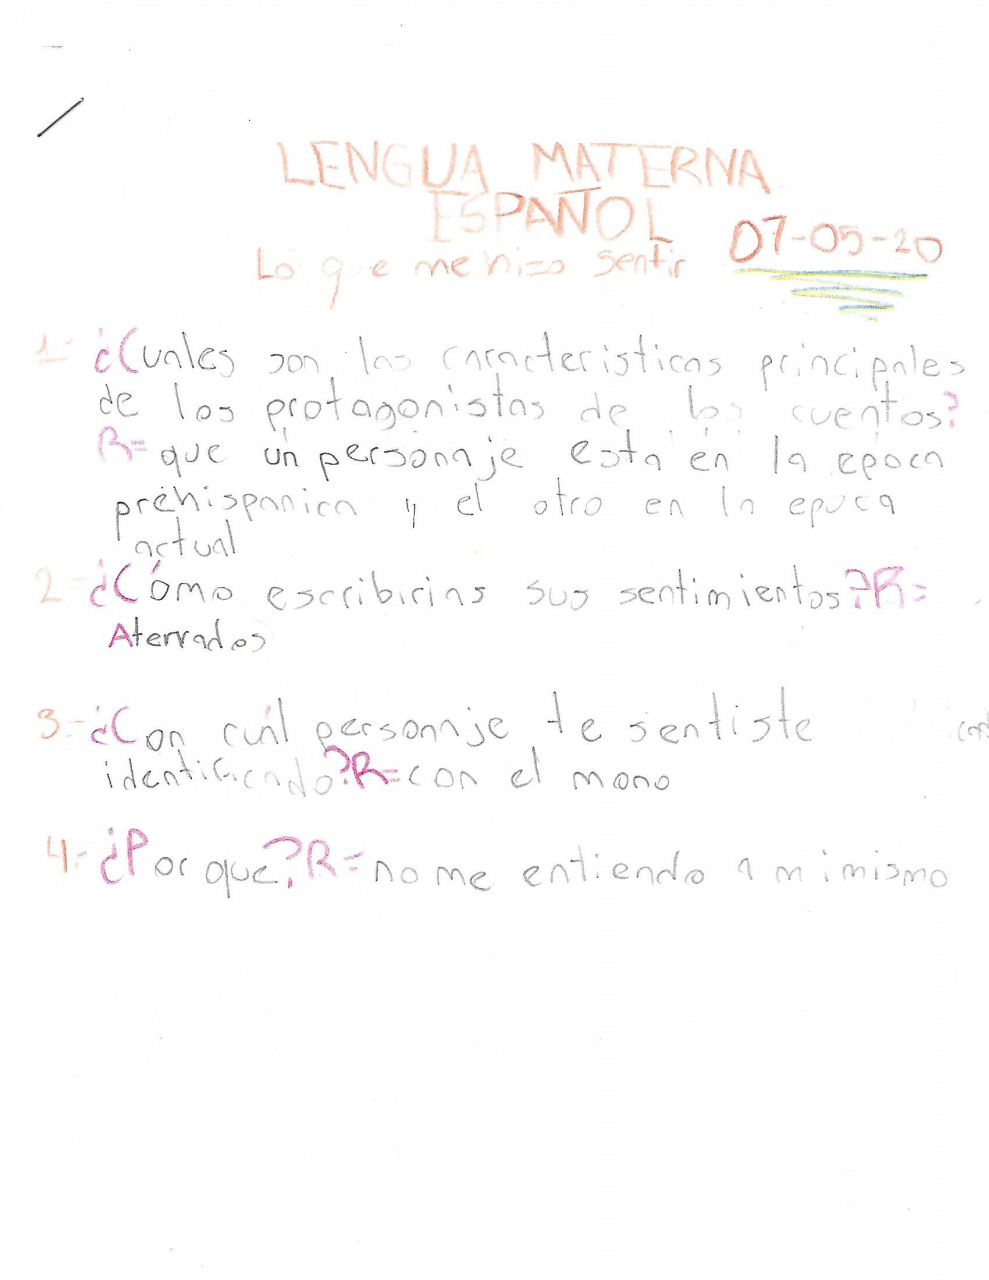 LENGUA MATERNA
ESPAÑOL
07-05-20
Lo que me hizo sentir
1- ¿Cuales son las caracteristicas principales
de los protagonistas de los cuentos?
R= que un personaje esta en la epoca
prehispanica y el otro en la epoca
actual
2- ¿Cómo escribirias sus sentimientos? R=
Aterrados
3- ¿Con cuál personaje te sentiste
identificado? R= con el mono
4.- ¿Por que? R= no me entiendo a mi mismo